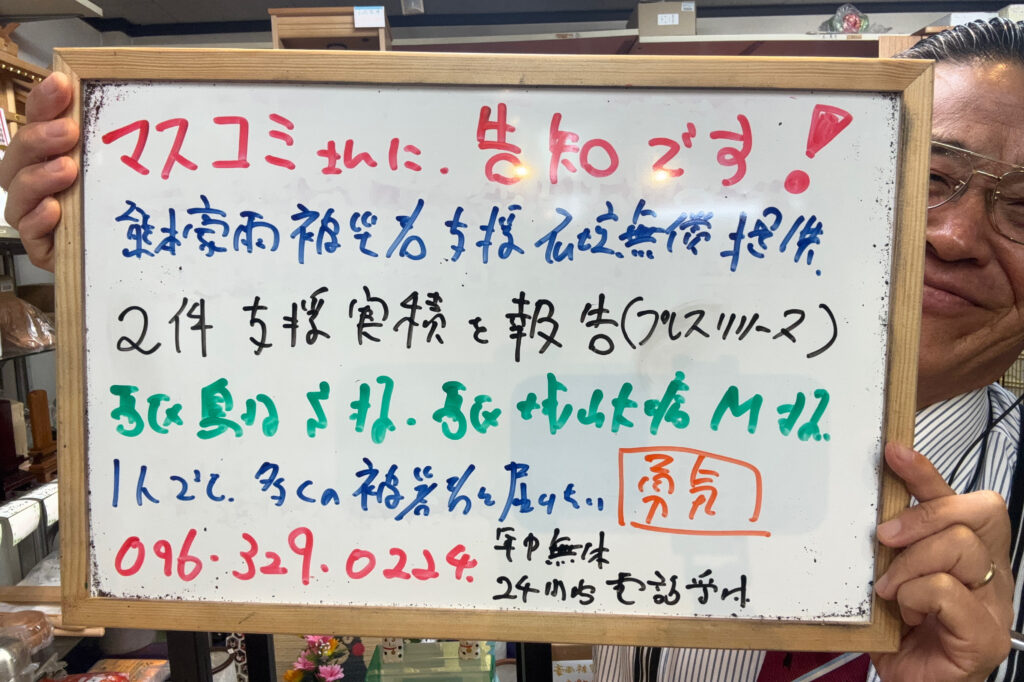 マスコミさんに、告知です!
熊本豪雨被災者支援 仏壇無償提供
2件支援実績を報告(プレスリリース)
1人でも、多くの被災者を届けたい 勇気
096.329.0224
年中無休
24時間電話受付